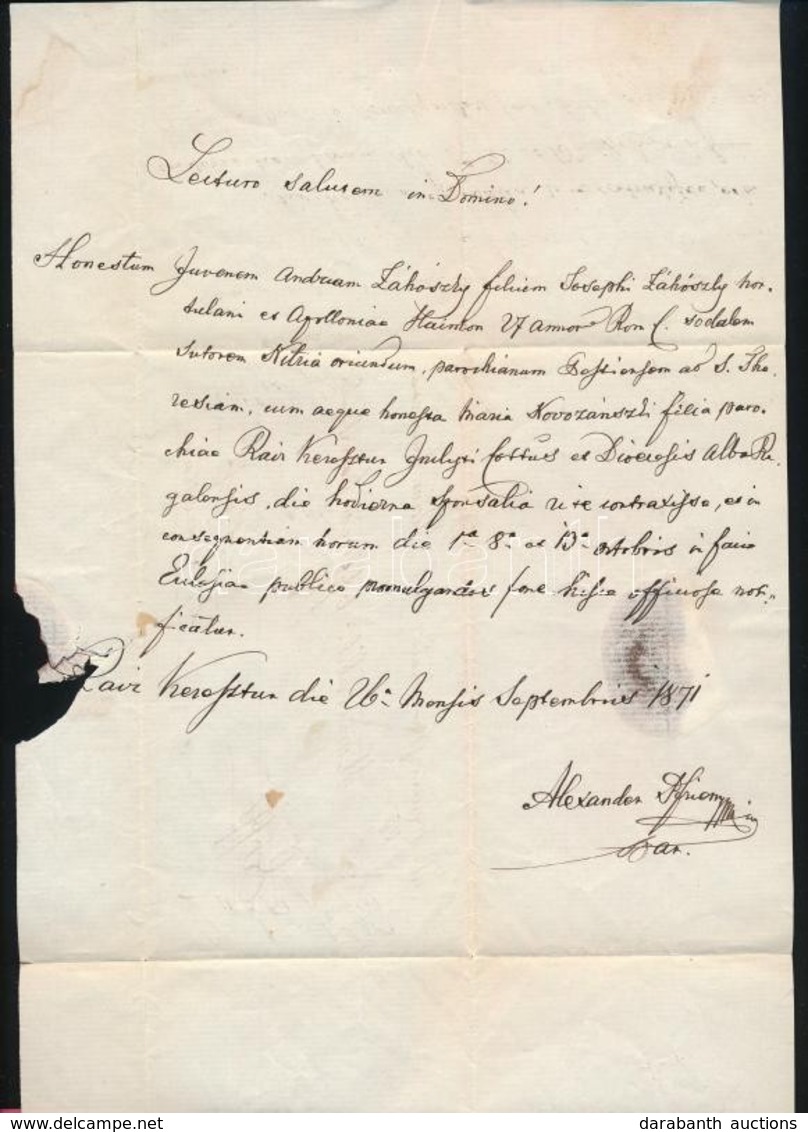 Lecturo salutem in Domino!
Honestum Juvenem Andream Záhószky filium Josephi Záhószky hor-
tulani et Apolloniae Hainton 27 annor Rom C. sodalem
sutorem Nitria oriundum, parochianum Pestiensem ad S. The-
resiam, cum aeque honesta Maria Novozánszki filia paro-
chiae Ráiz Keresztur Inclyti Cottus et Dioecesis Alba Re-
galensis, die hodierna sponsalia rite contraxisse, et in
consequentiam horum die 1a 8a et 15a octobris in facie
Ecclesiae publice promulgandos fore hisce officiose not-
ficatur.
Ráiz Keresztur die 26a Mensis Septembris 1871
Alexander
Par.
darabanth
darabanth auctions